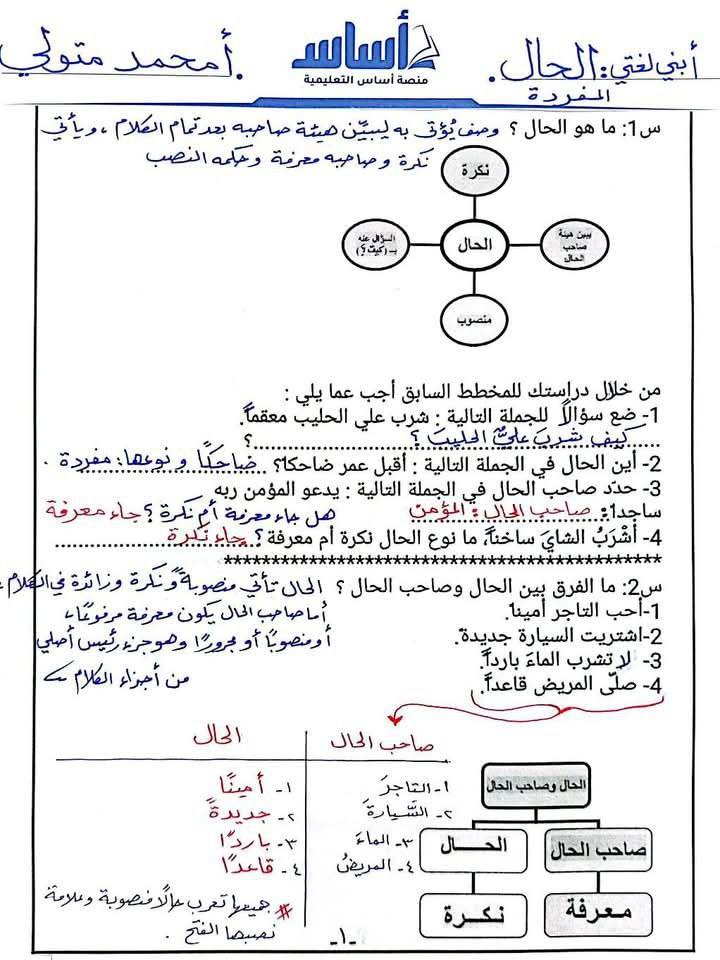 أبني لغتي: الحال.
المفردة
أساس
منصة أساس التعليمية
أ.محمد متولي
س1: ما هو الحال ؟ وصف يُؤتى به ليبيّن هيئة صاحبه بعد تمام الكلام ، ويأتي
نكرة و صاحبه معرفة وحكمه النصب
نكرة
يبين هيئة صاحب الحال
الحال
السؤال عنه بـ (كيف؟)
منصوب
من خلال دراستك للمخطط السابق أجب عما يلي :
1- ضع سؤالاً للجملة التالية : شرب علي الحليب معقماً.
كيف شربَ عليٌّ الحليبَ ؟ ؟
2- أين الحال في الجملة التالية : أقبل عمر ضاحكا؟ ضاحكًا و نوعها: مفردة .
3- حدّد صاحب الحال في الجملة التالية : يدعو المؤمن ربه
ساجدا: صاحب الحال : المؤمن هل جاء معرفة أم نكرة ؟ جاء معرفة
4- أشْرَبُ الشايَ ساخناً، ما نوع الحال نكرة أم معرفة؟ جاء نكرة
************************************************
س2: ما الفرق بين الحال وصاحب الحال ؟ الحال تأتي منصوبةً ونكرة وزائدة في الكلام ،
1-أحب التاجر أمينا. أما صاحب الحال يكون معرفة مرفوعًا،
2-اشتريت السيارة جديدة. أو منصوبًا أو مجرورًا وهو جزء رئيس أصلي
3- لا تشرب الماءَ بارداً. من أجزاء الكلام
4- صلّى المريض قاعداً.
صاحب الحال
الحال
١- التاجرَ ١- أمينًا
٢- السَّيارةَ ٢- جديدةً
٣- الماءَ ٣- باردًا
٤- المريضُ ٤- قاعدًا
# جميعها تعرب حالًا منصوبة وعلامة
نصبها الفتح .
الحال وصاحب الحال
صاحب الحال
الحـــال
معرفة
نكرة
-١-